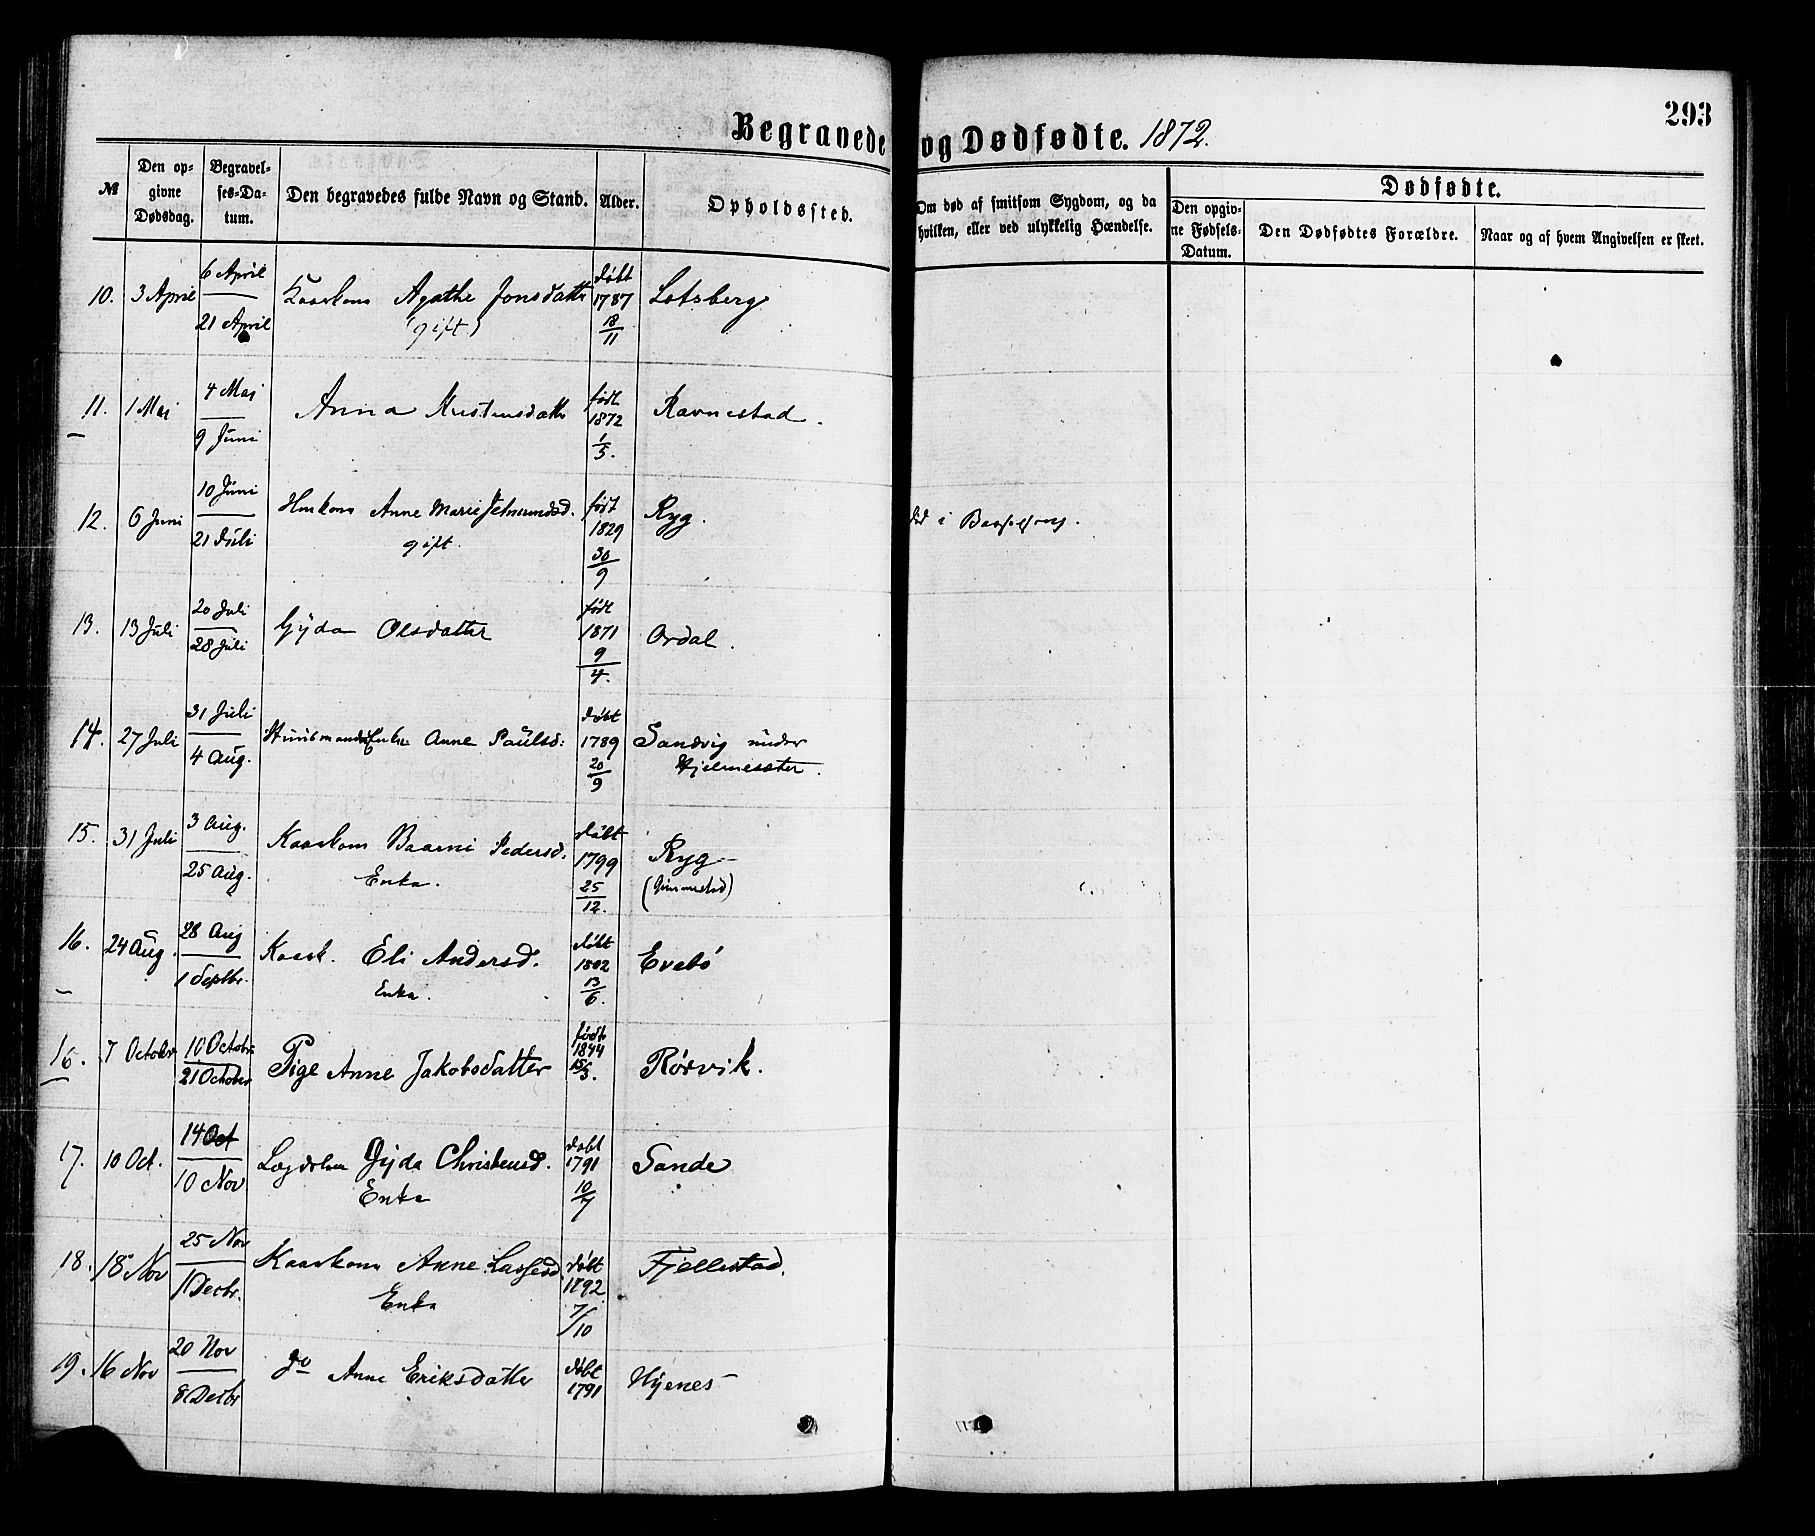 293
Begravede og Dødfødte. 1872.
№
Den opgivne Dødsdag.
Begravelses-Datum.
Den begravedes fulde Navn og Stand.
Alder.
Opholdssted.
Om død af smitsom Sygdom, og da hvilken, eller ved ulykkelig Hændelse.
Dødfødte.
Den opgivne Fødsels-Datum.
Den Dødfødtes Forældre.
Naar og af hvem Angivelsen er skeet.
10. 3 April 6 April 21 April Kaarkone Agathe Jonsdatter (gift) døbt 1787 18/11 Lotsberg
11. 1 Mai 4 Mai 9 Juni Anna født 1872 1/5. Ravnestad.
12. 6 Juni 10 Juni 21 Juli Huskone Anne Marie gift. født 1829 30/9 Ryg. død i Barselseng.
13. 13 Juli 20 Juli 28 Juli Gyda Olsdatter født 1871 9/4. Ordal.
14. 27 Juli 31 Juli 4 Aug. Huusmandsenke Anne Paulsd: døbt 1789 20/9 Sandvig under Hjelmesæter.
15. 31 Juli 3 Aug. 25 Aug. Kaarkone Baarni Pedersd. Enke. døbt 1799 25/12. Ryg (Gimmestad)
16. 24 Aug. 28 Aug 1 Septbr. Kaark. Eli Andersd. Enke. døbt 1802 13/6. Evebø
16. 7 October 10 Octobr. 21 October Pige Anne Jakobsdatter født 1844 15/3. Rørvik.
17. 10 Oct. 14 Oct 10 Nov Gyda Christensd. Enke døbt 1791 10/7 Sande
18. 18 Nov 25 Nov 1 Decbr. Kaarkone Anne Lassesd Enke døbt 1892 7/10 Fjellestad.
19. 16 Nov 20 Nov 8 Decbr do Anne Eriksdatter døbt 1791 Hyenes